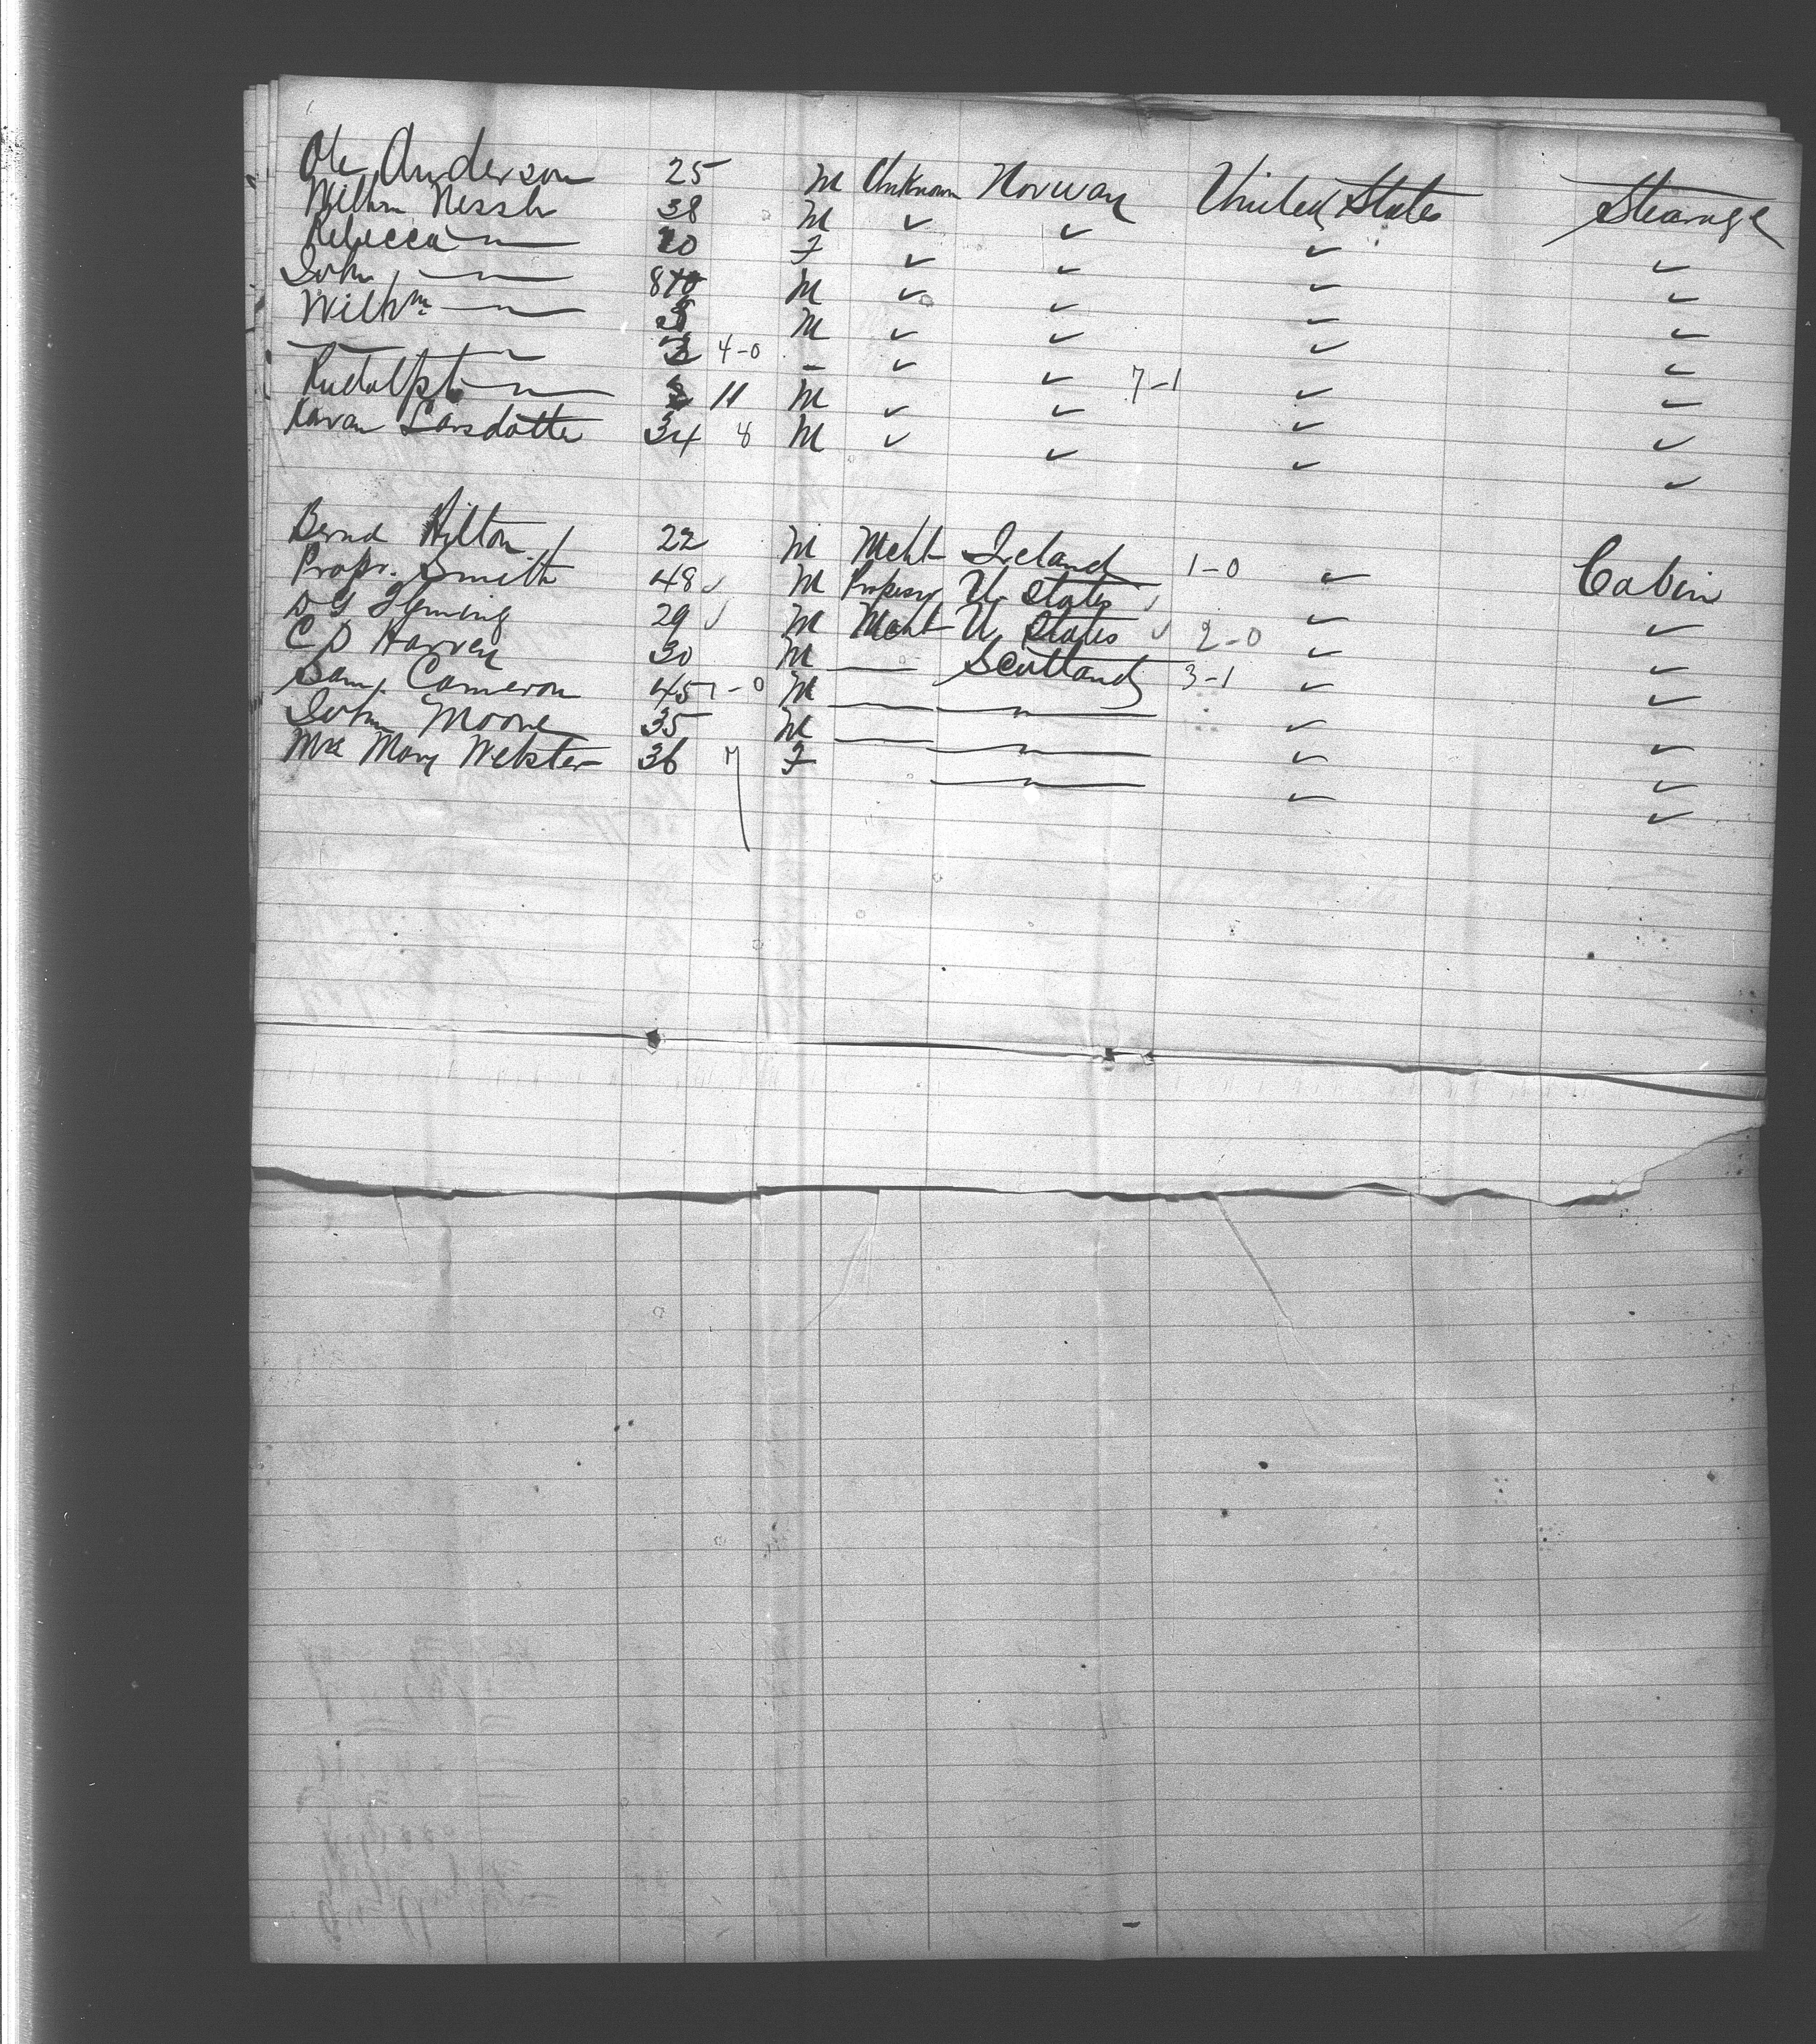 Ole Anderson 25 M Unknown Norway United States Stearage
Wilhm Nessler 38 M ✓ ✓ ✓ ✓
Rebecca —〃— F ✓ ✓ ✓ ✓
John —〃— 8 M ✓ ✓ ✓ ✓
Wilhm —〃— M ✓ ✓ ✓ ✓
— 〃 — 4-0 - ✓ ✓ 7-1 ✓ ✓
Rudolph —〃— 11 M ✓ ✓ ✓ ✓
Karan Larsdotter 34 8 M ✓ ✓ ✓ ✓
Bernd Hilton 22 M Mcht Ireland 1-0 ✓ Cabin
Profr. Smith 48 ✓ M Professr U. States ✓ ✓ ✓
D G Fleming 29 ✓ M Mcht U. States ✓ 2-0 ✓ ✓
C D Harvey 30 M — Scotland 3-1 ✓ ✓
Saml. Cameron 45 7-0 M — —〃— ✓ ✓
John Moore 35 M — —〃— ✓ ✓
Mrs Mary Webster 36 7 F —〃— ✓ ✓